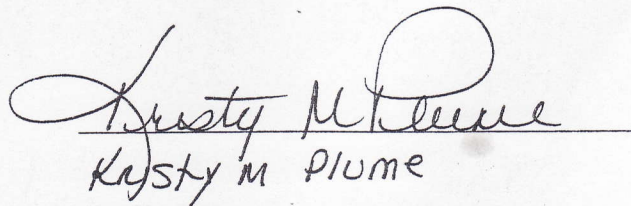 Kristy M Plume
Kristy M Plume